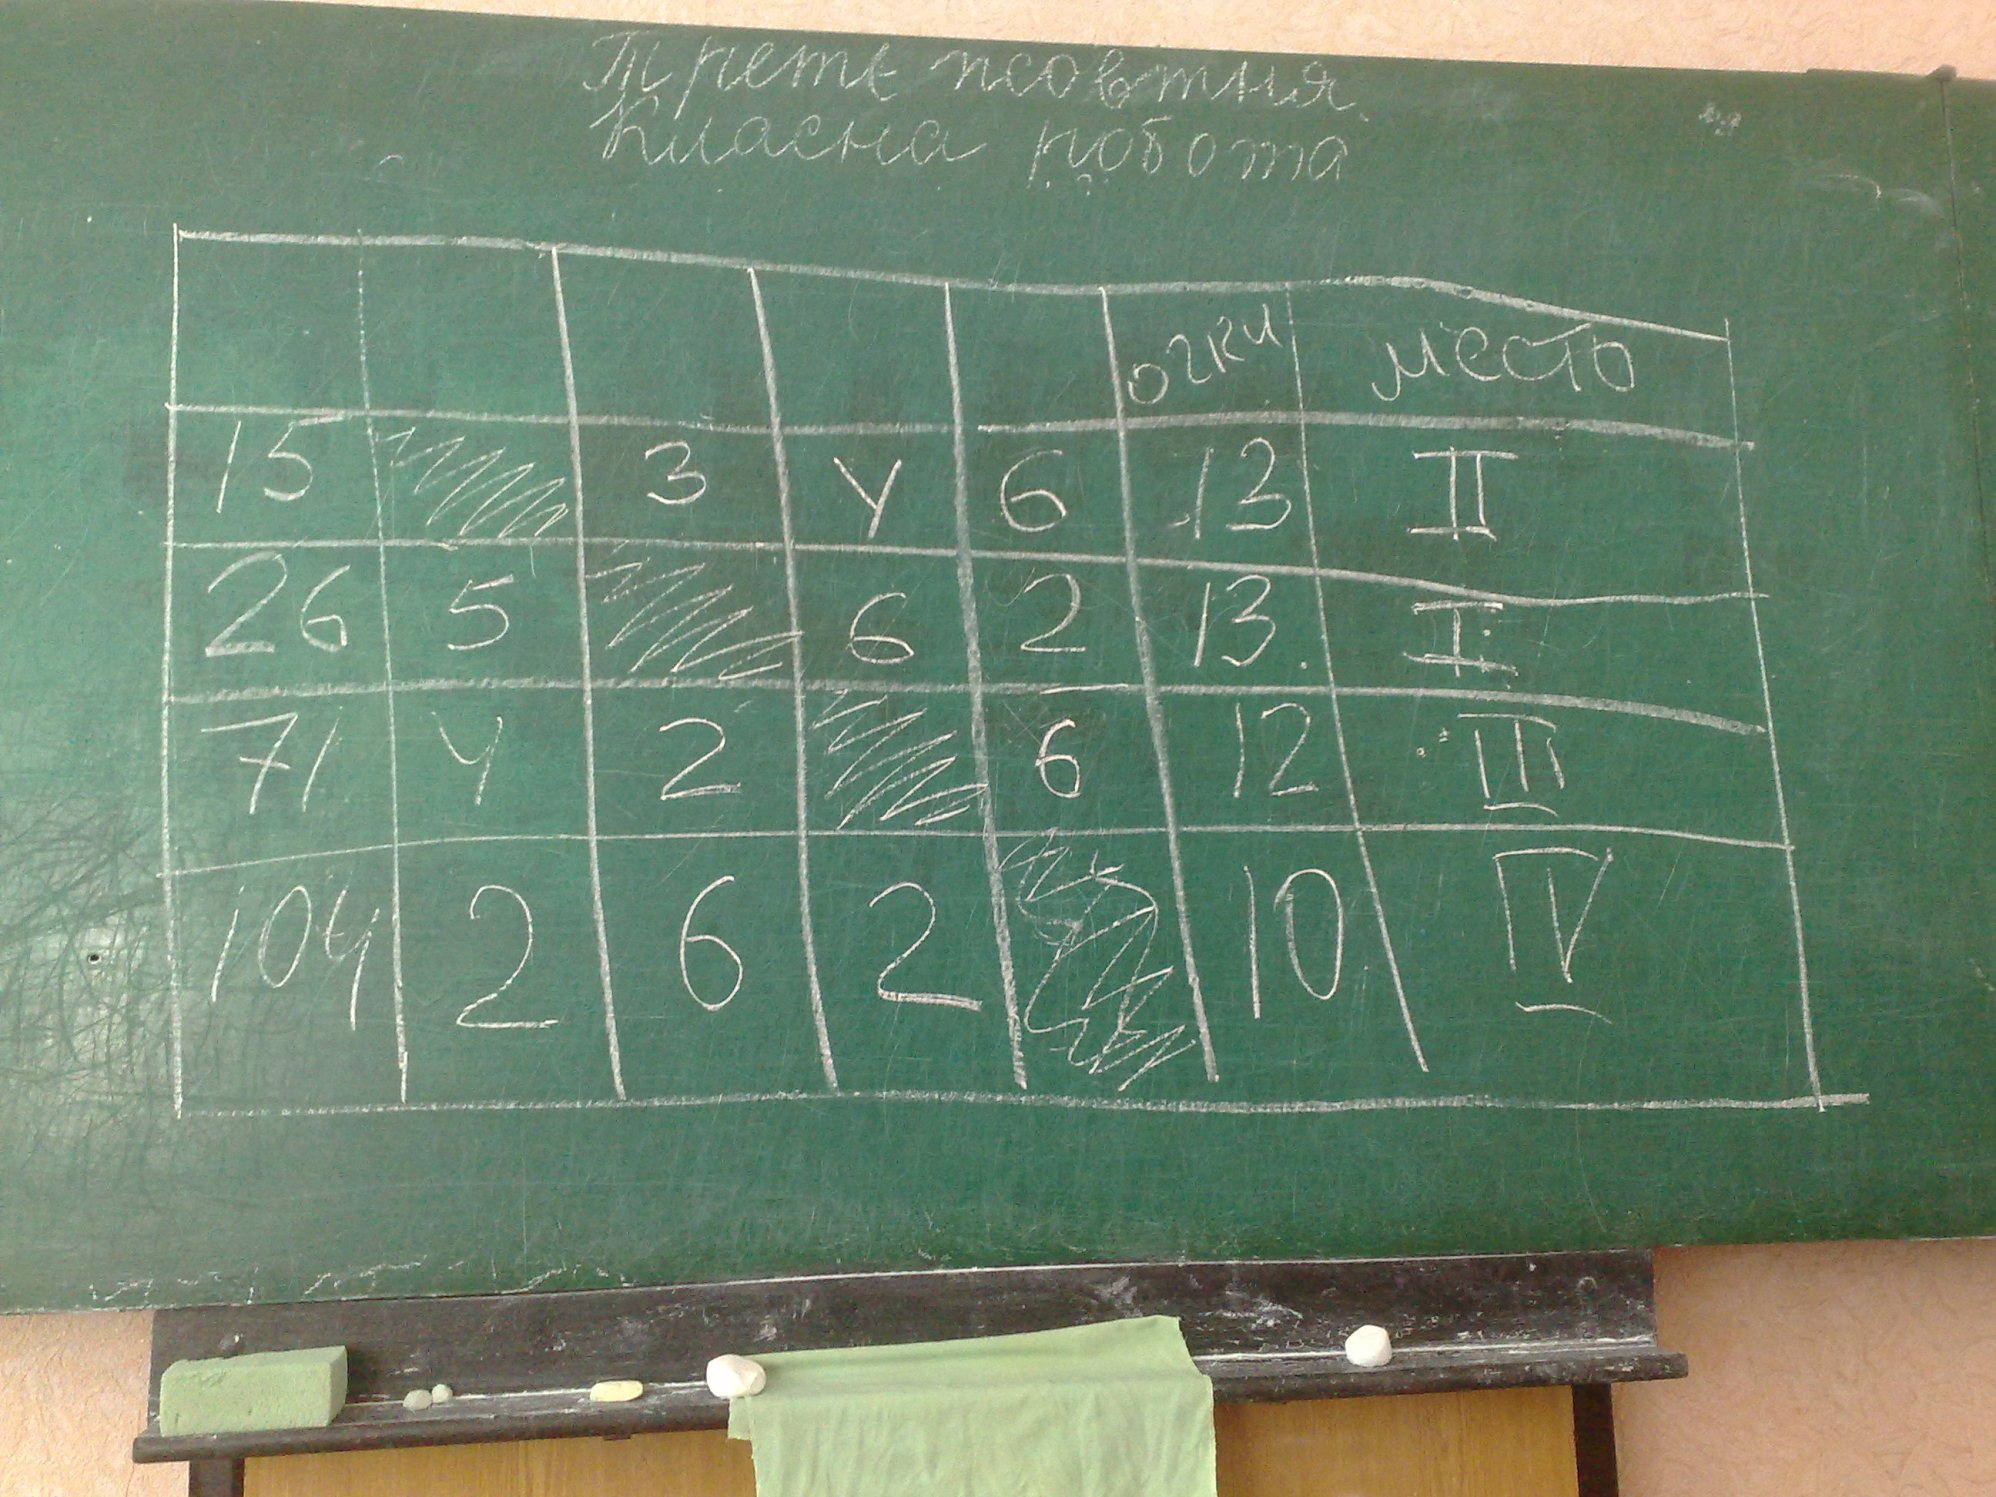 Третє жовтня.
Класна робота
очки месть
15 3 4 6 13 II
26 5 6 2 13. I
71 4 2 6 12 III
104 2 6 2 10 IV